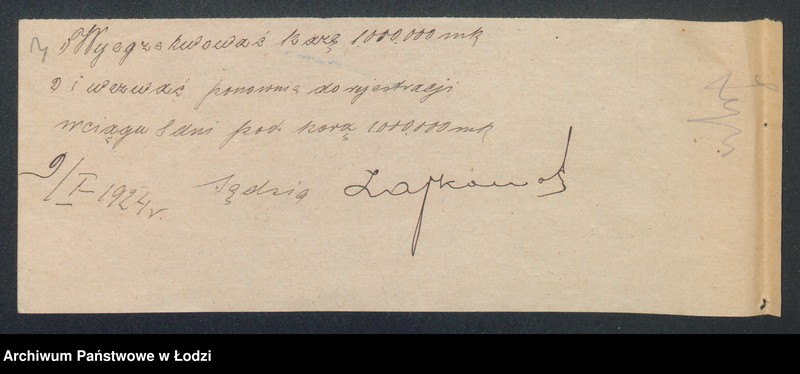 1) Wyegzekwować karę 1.000.000 mk
2) i wezwać ponownie do rejestracji
w ciągu 8 dni pod karą 1000.000 mk
9/I-1924 r. Sędzia
Archiwum Państwowe w Łodzi